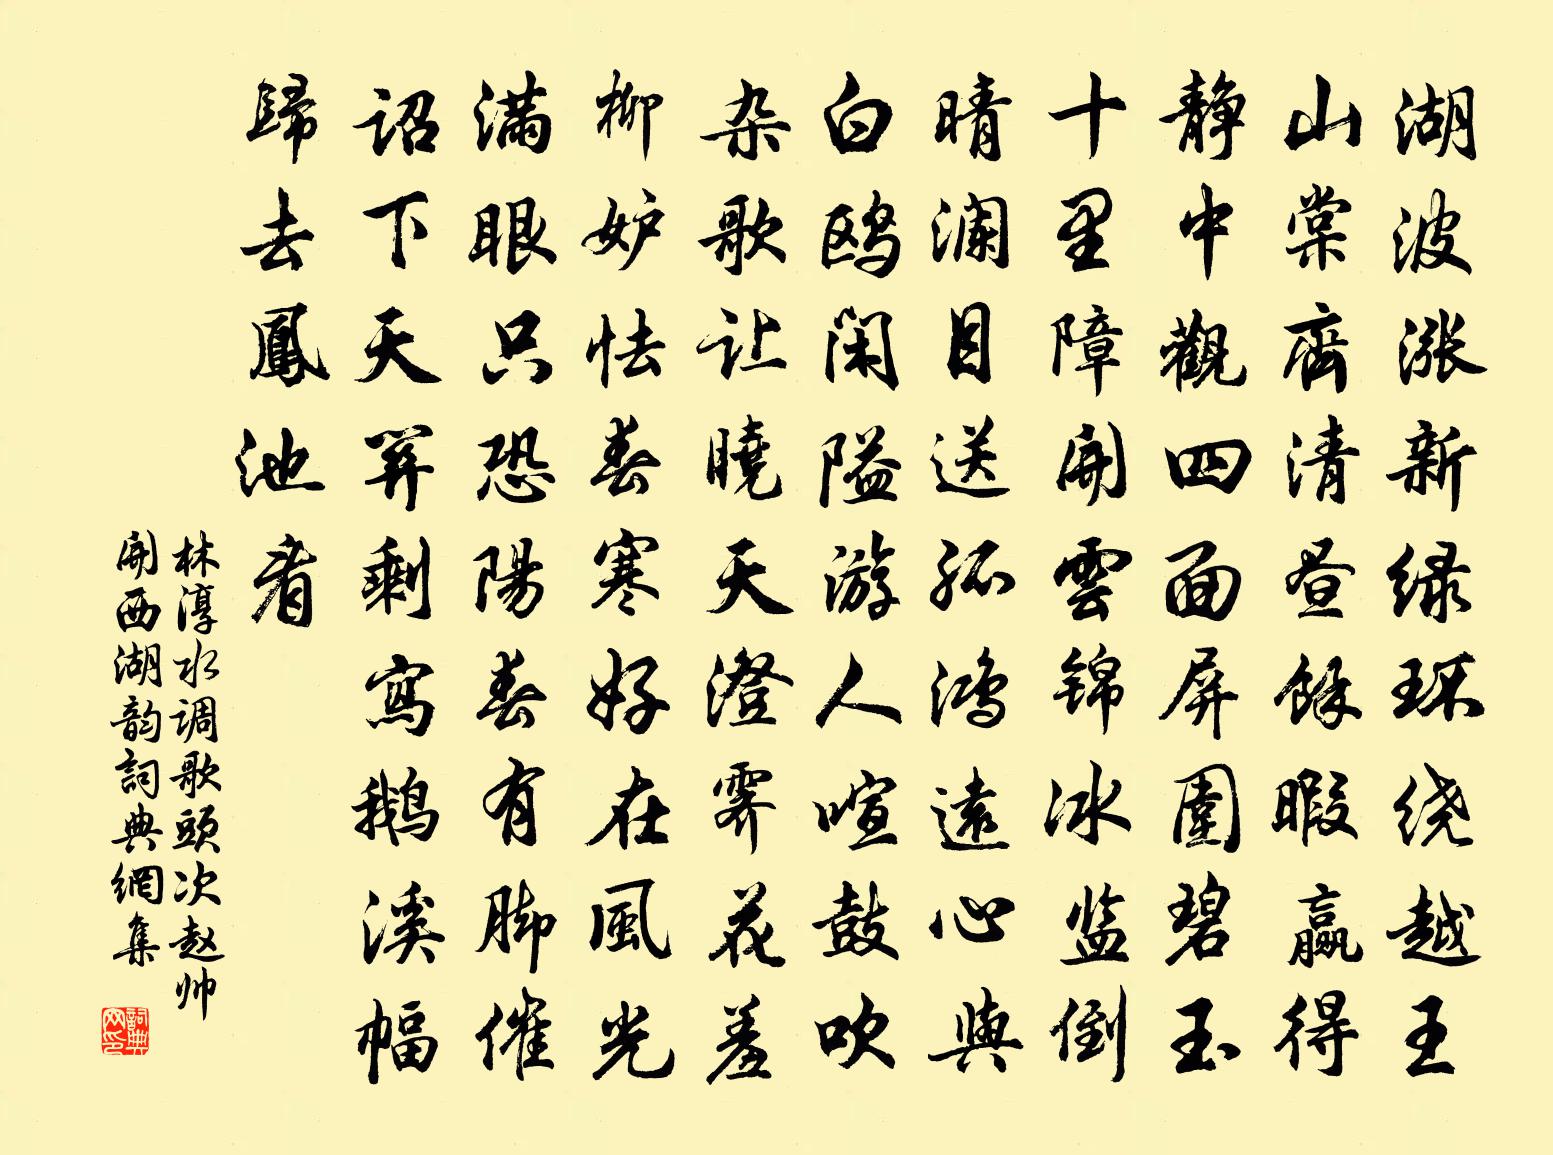 湖波涨新绿环绕越王
山棠齋清昼馀暇赢得
静中觀四面屏圍碧玉
十里障開雲锦冰监倒
晴澜目送孤鸿遠心與
白鸥闲隘游人喧鼓吹
杂歌让曉天澄霁花羞
柳妒怯春寒好在風光
满眼只恐陽春有脚催
诏下天筭剩寫鹅溪幅
歸去鳳池看
林淳水调歌頭次赵帅
開西湖韵詞典網集
詞典网印